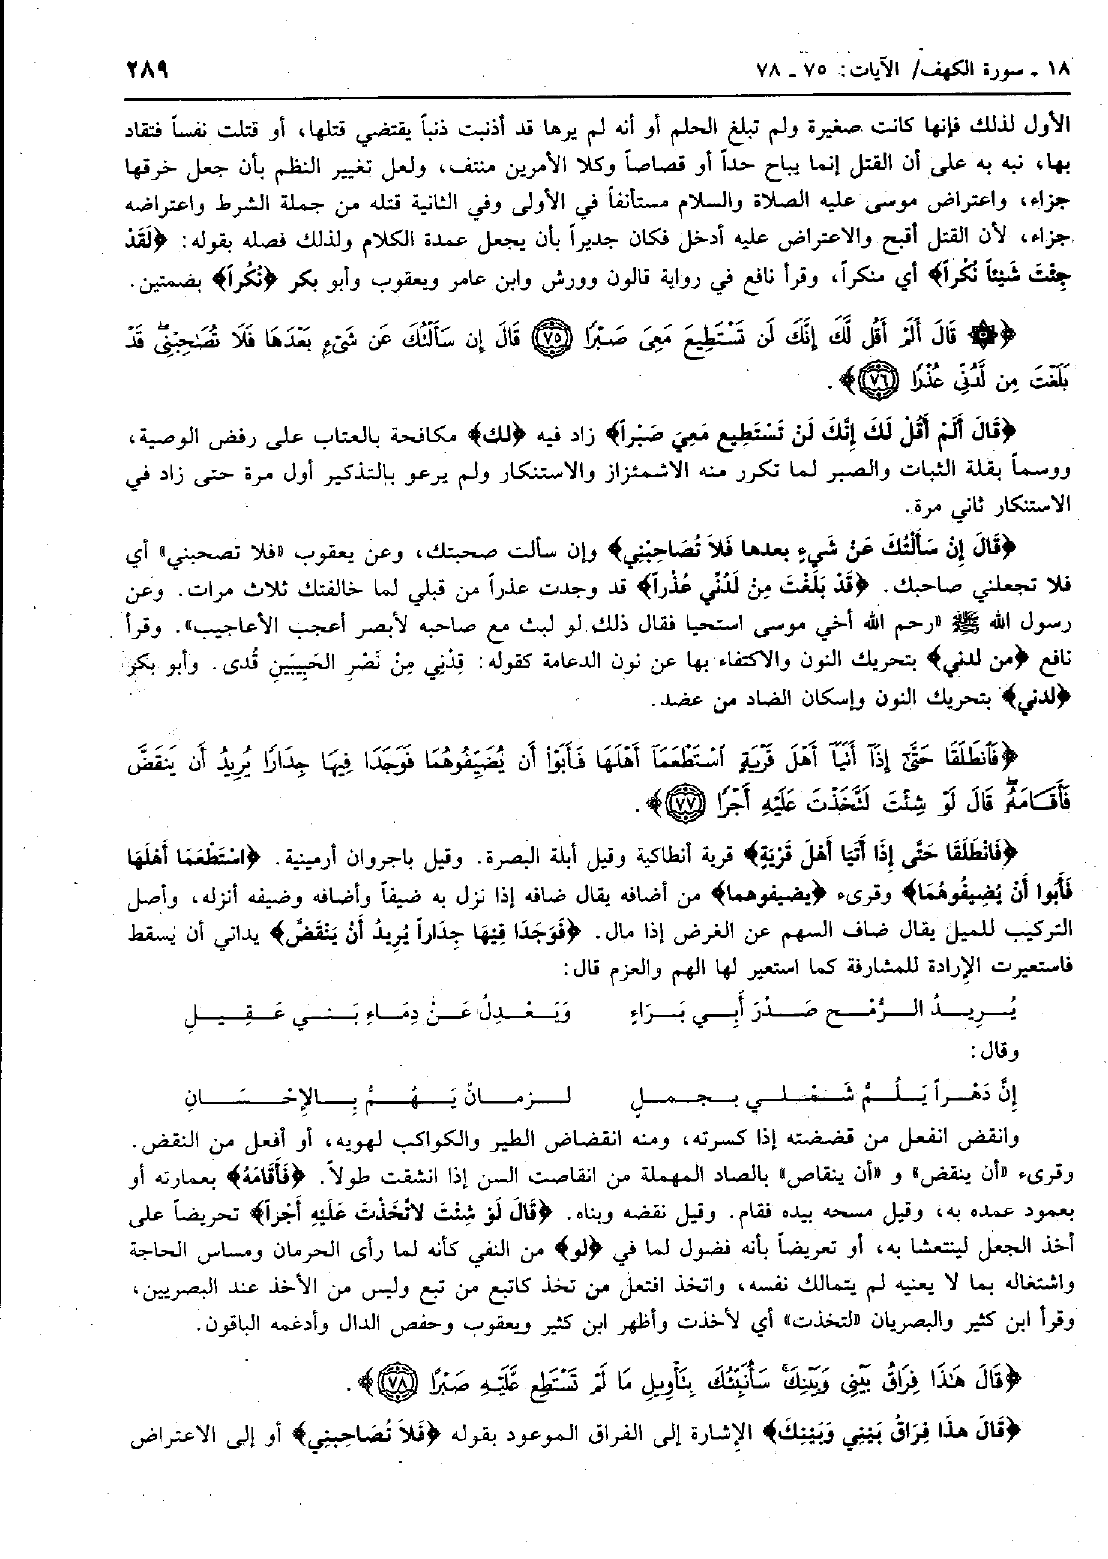 ١٨ - سورة الكهف/ الآيات: ٧٥ - ٧٨ ٢٨٩
الأول لذلك فإنها كانت صغيرة ولم تبلغ الحلم أو أنه لم يرها قد أذنبت ذنباً يقتضي قتلها، أو قتلت نفساً فتقاد
بها، نبه به على أن القتل إنما يباح حداً أو قصاصاً وكلا الأمرين منتف، ولعل تغيير النظم بأن جعل خرقها
جزاء، واعتراض موسى عليه الصلاة والسلام مستأنفاً في الأولى وفي الثانية قتله من جملة الشرط واعتراضه
جزاء، لأن القتل أقبح والاعتراض عليه أدخل فكان جديراً بأن يجعل عمدة الكلام ولذلك فصله بقوله: ﴿لَقَدْ
جِئْتَ شَيْئاً نُكْراً﴾ أي منكراً، وقرأ نافع في رواية قالون وورش وابن عامر ويعقوب وأبو بكر ﴿نُكُراً﴾ بضمتين.
﴿۞ قَالَ أَلَمْ أَقُل لَّكَ إِنَّكَ لَن تَسْتَطِيعَ مَعِيَ صَبْرًا ﴿٧٥﴾ قَالَ إِن سَأَلْتُكَ عَن شَيْءٍ بَعْدَهَا فَلَا تُصَاحِبْنِي ۖ قَدْ
بَلَغْتَ مِن لَّدُنِّي عُذْرًا ﴿٧٦﴾﴾.
﴿قَالَ أَلَمْ أَقُلْ لَكَ إِنَّكَ لَنْ تَسْتَطِيع مَعِيَ صَبْراً﴾ زاد فيه ﴿لك﴾ مكافحة بالعتاب على رفض الوصية،
ووسماً بقلة الثبات والصبر لما تكرر منه الاشمئزاز والاستنكار ولم يرعو بالتذكير أول مرة حتى زاد في
الاستنكار ثاني مرة.
﴿قَالَ إِنْ سَأَلْتُكَ عَنْ شَيءٍ بعدها فَلاَ تُصَاحِبْنِي﴾ وإن سألت صحبتك، وعن يعقوب «فلا تصحبني» أي
فلا تجعلني صاحبك. ﴿قَدْ بَلَغْتَ مِنْ لَدُنِّي عُذْراً﴾ قد وجدت عذراً من قبلي لما خالفتك ثلاث مرات. وعن
رسول الله ﷺ «رحم الله أخي موسى استحيا فقال ذلك لو لبث مع صاحبه لأبصر أعجب الأعاجيب». وقرأ
نافع ﴿من لدني﴾ بتحريك النون والاكتفاء بها عن نون الدعامة كقوله: قِدْنِي مِنْ نَصْرِ الحَبِيبَينِ قُدى. وأبو بكر
﴿لدني﴾ بتحريك النون وإسكان الضاد من عضد.
﴿فَانطَلَقَا حَتَّىٰ إِذَا أَتَيَا أَهْلَ قَرْيَةٍ اسْتَطْعَمَا أَهْلَهَا فَأَبَوْا أَن يُضَيِّفُوهُمَا فَوَجَدَا فِيهَا جِدَارًا يُرِيدُ أَن يَنقَضَّ
فَأَقَامَهُ ۖ قَالَ لَوْ شِئْتَ لَتَّخَذْتَ عَلَيْهِ أَجْرًا ﴿٧٧﴾﴾.
﴿فَانْطَلَقَا حَتَّى إِذَا أَتَيَا أَهلَ قَرْيَةٍ﴾ قرية أنطاكية وقيل أبلة البصرة. وقيل باجروان أرمينية. ﴿اسْتَطْعَمَا أَهْلَهَا
فَأَبوا أَنْ يُضِيفُوهُمَا﴾ وقرىء ﴿يضيفوهما﴾ من أضافه يقال ضافه إذا نزل به ضيفاً وأضافه وضيفه أنزله، وأصل
التركيب للميل يقال ضاف السهم عن الغرض إذا مال. ﴿فَوَجَدَا فِيْهَا جِدَاراً يُرِيدُ أَنْ يَنْقَضَّ﴾ يداني أن يسقط
فاستعيرت الإرادة للمشارفة كما استعير لها الهم والعزم قال:
يُرِيدُ الرُّمْح صَدْرَ أَبِي بَرَاءٍ وَيَعْدِلُ عَنْ دِمَاءِ بَنِي عَقِيلِ
وقال:
إِنَّ دَهْراً يَلُمُّ شَمْلِي بِجمل لزمانٌ يَهُمُّ بِالإِحْسَانِ
وانقض انفعل من قضضته إذا كسرته، ومنه انقضاض الطير والكواكب لهويه، أو أفعل من النقض.
وقرىء «أن ينقض» و «أن ينقاص» بالصاد المهملة من انقاصت السن إذا انشقت طولاً. ﴿فَأَقَامَهُ﴾ بعمارته أو
بعمود عمده به، وقيل مسحه بيده فقام. وقيل نقضه وبناه. ﴿قَالَ لَوْ شِئْتَ لاتَّخَذْتَ عَلَيْهِ أَجْراً﴾ تحريضاً على
أخذ الجعل لينتعشا به، أو تعريضاً بأنه فضول لما في ﴿لو﴾ من النفي كأنه لما رأى الحرمان ومساس الحاجة
واشتغاله بما لا يعنيه لم يتمالك نفسه، واتخذ افتعل من تخذ كاتبع من تبع وليس من الأخذ عند البصريين،
وقرأ ابن كثير والبصريان «لتخذت» أي لأخذت وأظهر ابن كثير ويعقوب وحفص الدال وأدغمه الباقون.
﴿قَالَ هَٰذَا فِرَاقُ بَيْنِي وَبَيْنِكَ ۚ سَأُنَبِّئُكَ بِتَأْوِيلِ مَا لَمْ تَسْتَطِع عَّلَيْهِ صَبْرًا ﴿٧٨﴾﴾.
﴿قَالَ هذَا فِرَاقُ بَيْنِي وَبَيْنِكَ﴾ الإشارة إلى الفراق الموعود بقوله ﴿فَلاَ تُصَاحِبنِي﴾ أو إلى الاعتراض